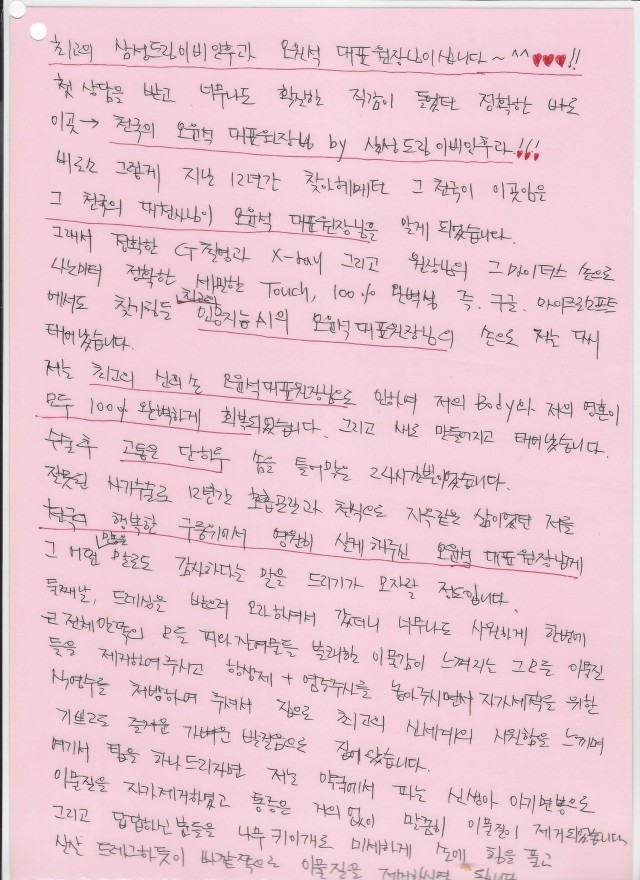 최고의 삼성드림이비인후과 오원석 대표원장님이십니다~^^♥♥♥!!
첫 상담을 받고 너무나도 확진한 직감이 들었던 정확한 바로
이곳→ 천국의 오원석 대표원장님 by 삼성드림이비인후과!!!
비로소 그렇게 지난 12년간 찾아헤메던 그 천국이 이곳임은
그 천국의 대천사님이 오원석 대표원장님을 알게 되었습니다.
그래서 정확한 CT촬영과 X-ray 그리고 원장님의 그 마이더스 손으로
나노미터 정확한 세밀한 Touch, 100% 완벽성 즉. 구글. 마이크로소프트
에서도 찾기힘들 최고의 인공지능 AI의 오원석대표원장님의 손으로 저는 다시
태어났습니다.
저는 최고의 신의손 오원석대표원장님으로 인하여 저의 Body와 저의 영혼이
모두 100% 완벽하게 회복되었습니다. 그리고 새로 만들어지고 태어났습니다.
수술후 고통은 단하루 솜을 틀어막을 24시간뿐이었습니다.
잘못된 사기수술로 12년간 호흡곤란과 천식으로 지옥같은 삶이었던 저를
천국의 행복한 구름위에서 영원히 살게해주신 오원석 대표원장님께
그 어떤 말로도 감사하다는 말을 드리기가 모자랄 정도입니다.
둘째날, 드레싱을 받으러 오라하셔서 갔더니 너무나도 시원하게 한번에
코전체안쪽의 모든 피와 잔여물들 불쾌한 이물감이 느껴지는 그 모든 이물질
들을 제거하여주시고 항생제 + 염증주사를 놓아주시면서 자가세척을 위한
식염수를 처방하여 주셔서 집으로 최고의 신세계의 시원함을 느끼며
기쁘고도 즐거운 가벼운 발걸음으로 집에 왔습니다.
여기서 팁을 하나 드리자면 저는 약국에서 파는 신생아 아기면봉으로
이물질을 자가제거하였고 통증은 거의 없이 말끔히 이물질이 제거되었습니다.
그리고 답답하신 분들을 나무 키이개로 미세하게 손에 힘을 풀고
살살 드레그하듯이 바깥쪽으로 이물질을 제거하시면 됩니다